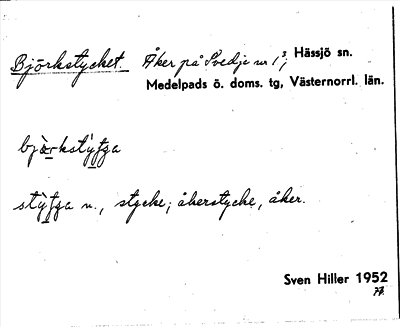 Björkstycket. Åker på Svedje nr 1³; Hässjö sn.
Medelpads ö. doms. tg, Västernorrl. län.
bjœ̀rkstỳfga
stỳfga n., stycke; åkerstycke, åker.
Sven Hiller 1952